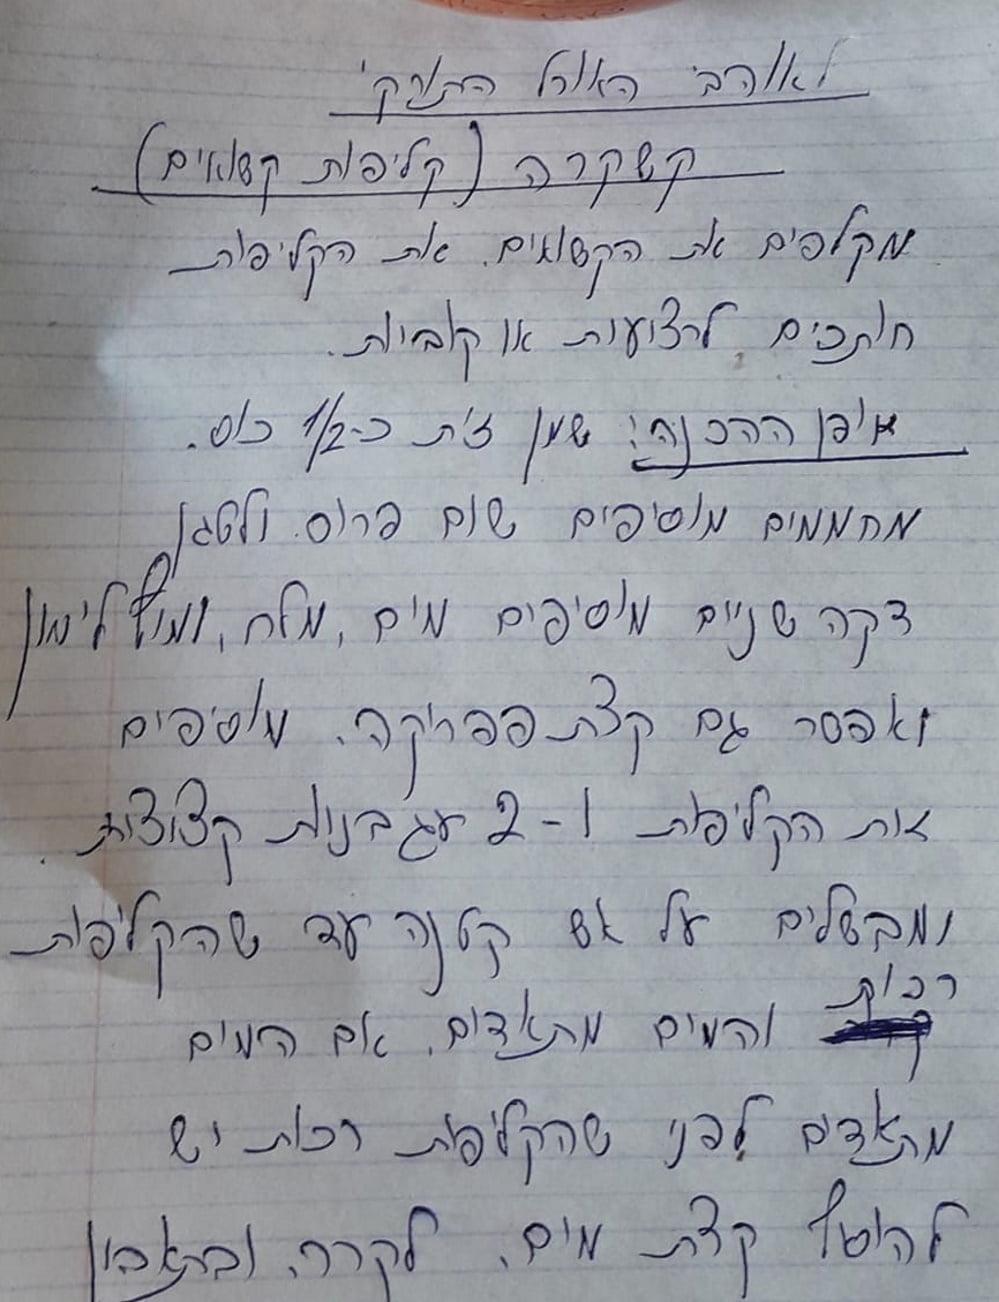 לאוהבי האוכל התורקי
קשקרה (קליפות קשואים)
מקלפים את הקשואים. את הקליפות
חותכים לרצועות או קוביות.
אופן ההכנה: שמן זית כ-1/2 כוס.
מחממים מוסיפים שום פרוס. ולטגן
דקה שניים מוסיפים מים, מלח, ומיץ לימון
ואפשר גם קצת פפריקה. מוסיפים
את הקליפות ו-2 עגבניות קצוצות.
ומבשלים על אש קטנה עד שהקליפות
רכות והמים מתאדים. אם המים
מתאדים לפני שהקליפות רכות יש
להוסיף קצת מים. לקרר. ובתאבון